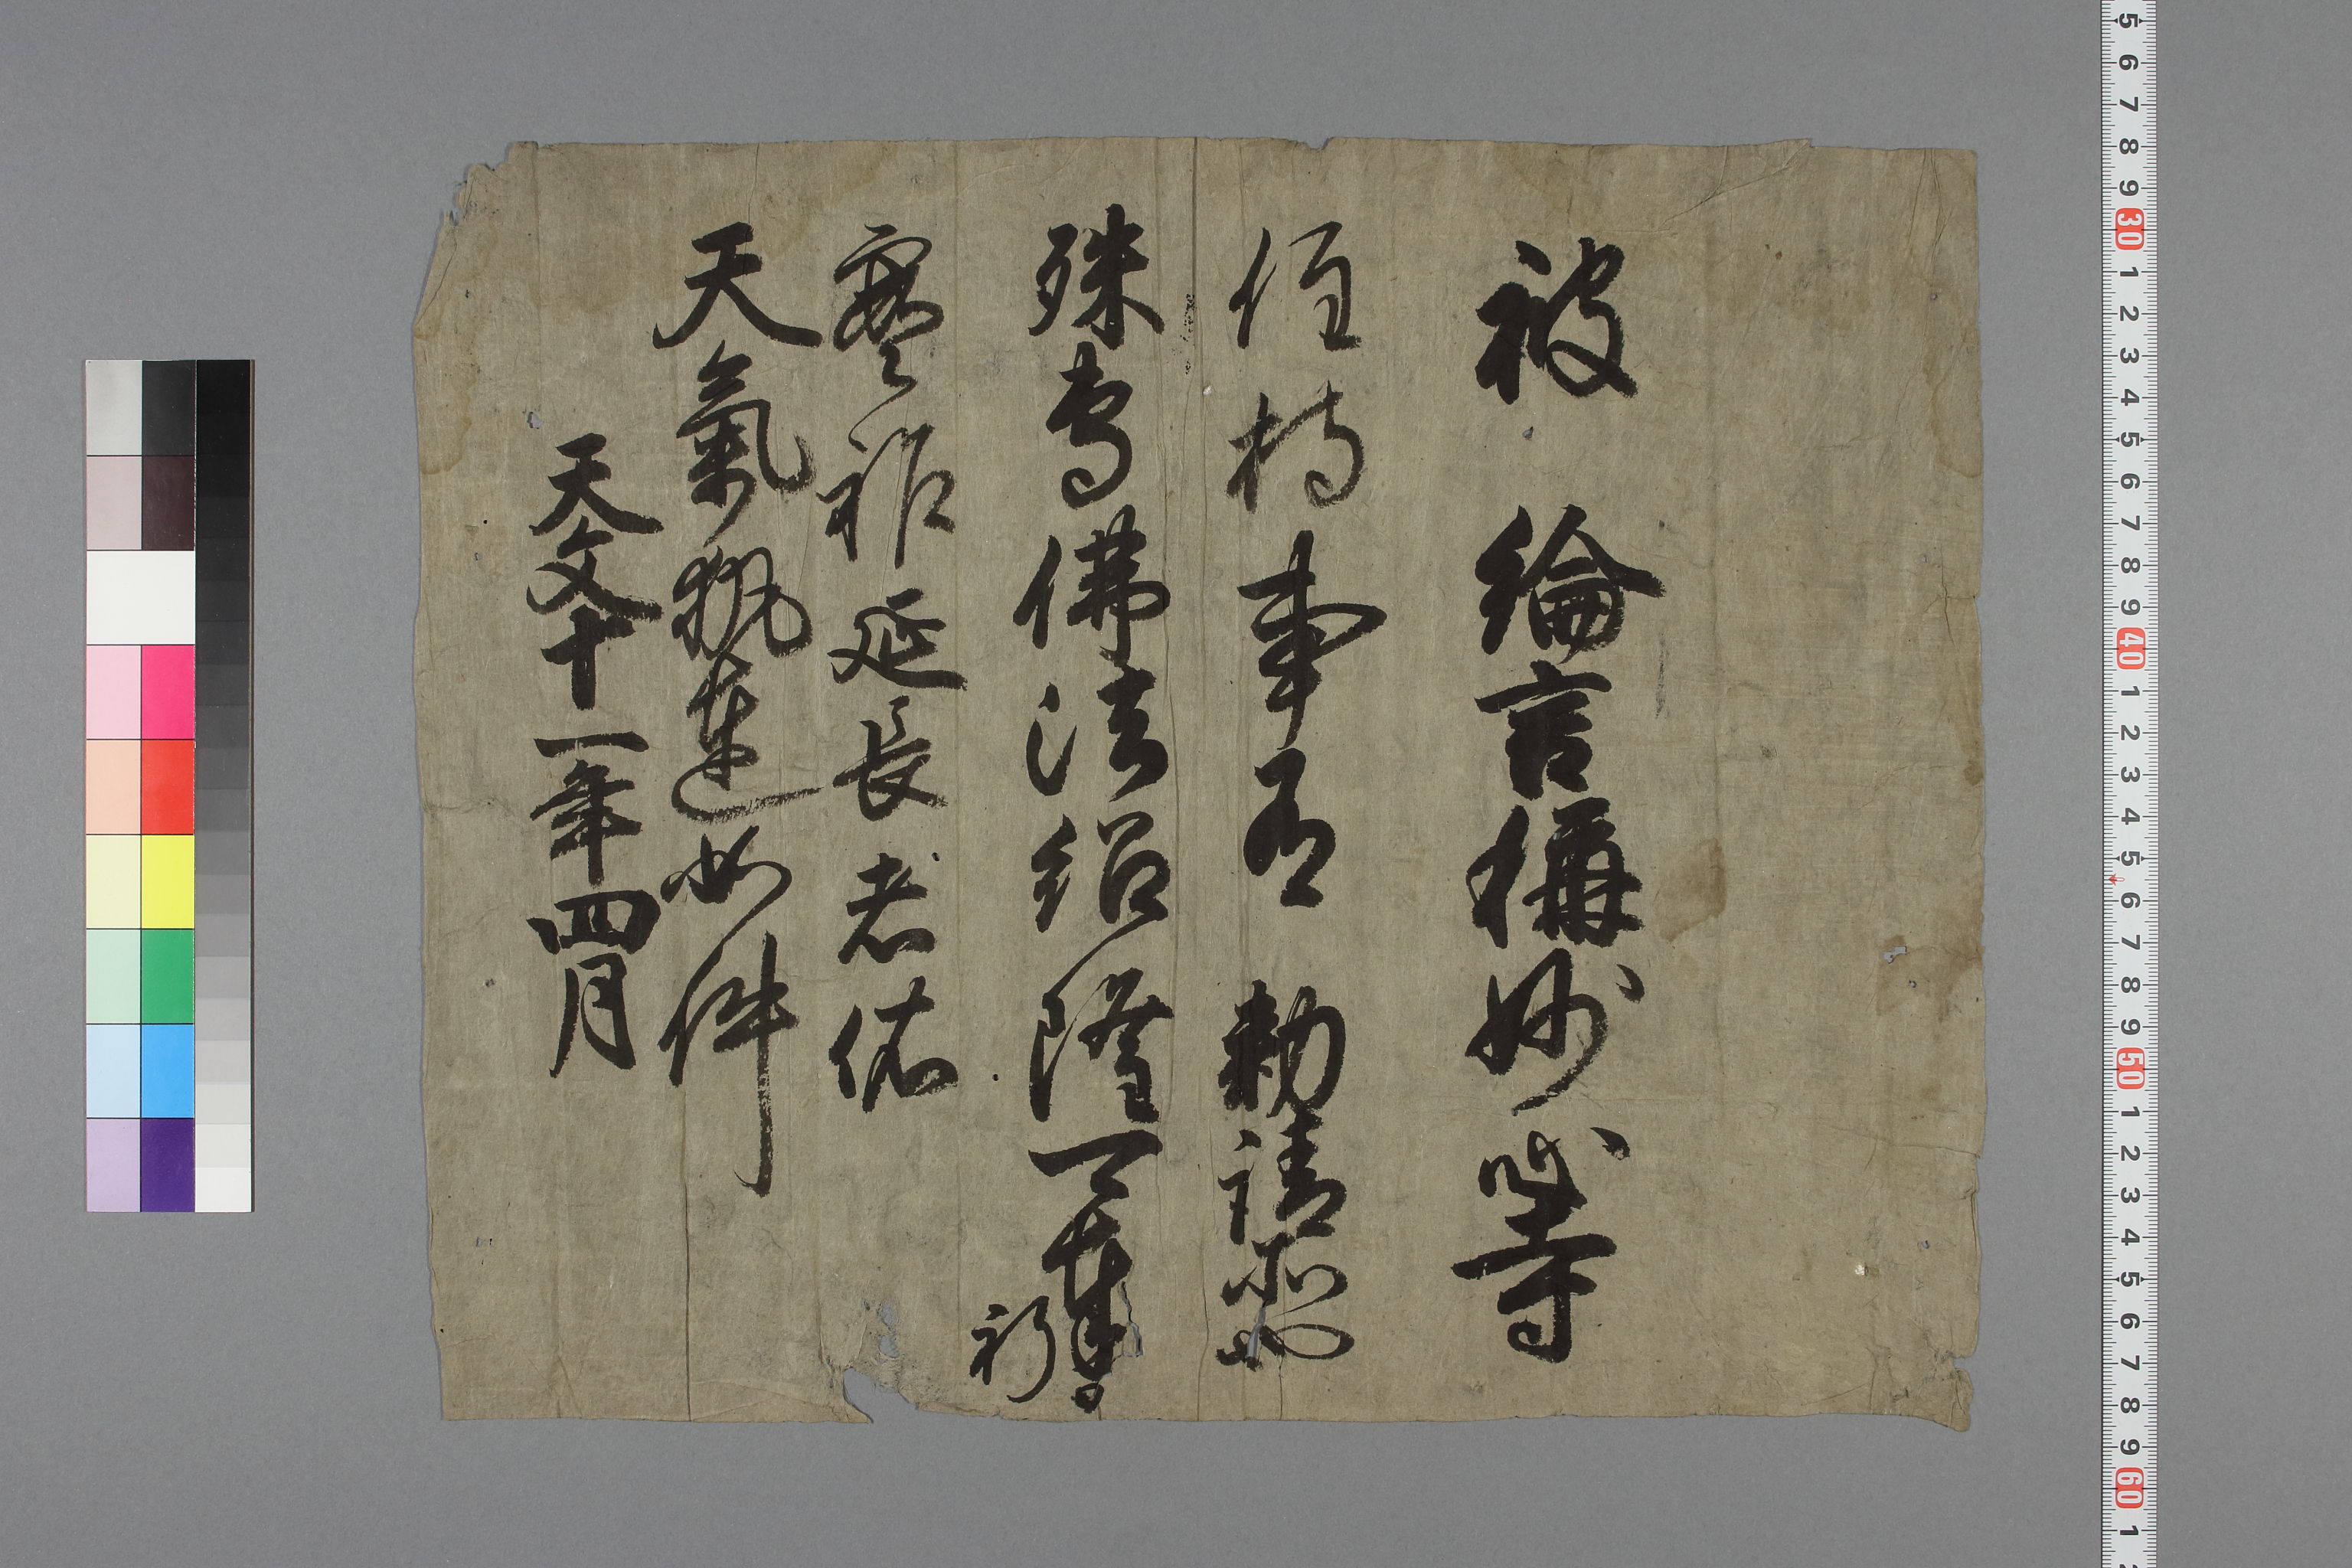 被　綸言稱妙心寺
住持事有　勅請
殊専佛法紹隆可奉祈
寳祚延長者依
天氣執達如件
天文十一年四月